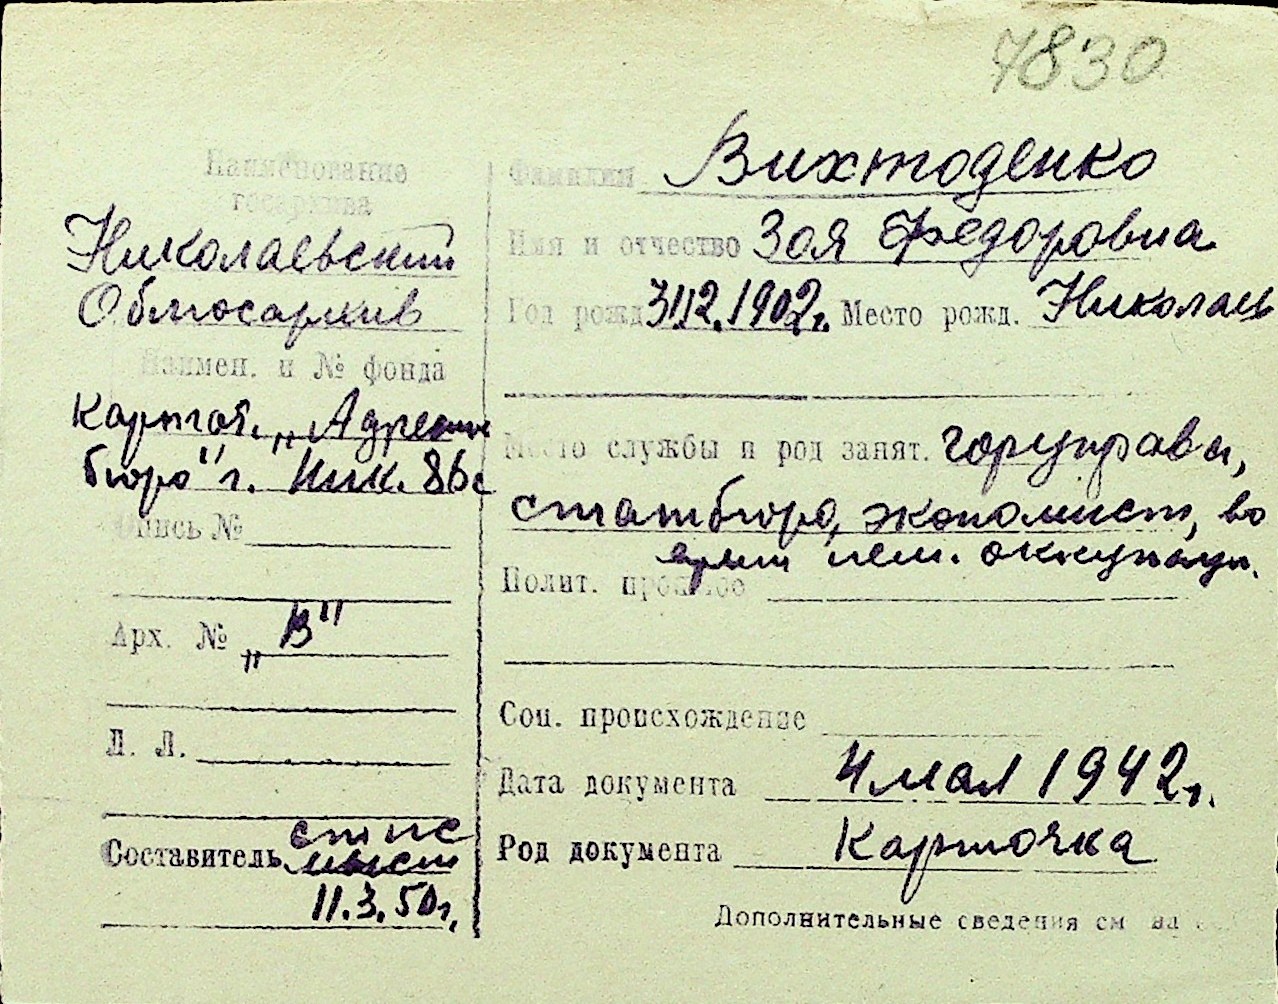 7830
Наименование
госархива
Николаевский
Облгосархив
Наимен. и № фонда
картот. „Адресное
бюро" г. Ник. 86с
Опись №
Арх. № „В"
Л. Л.
Составитель
11.3.50г.
Фамилия Вихтоденко
Имя и отчество Зоя Федоровна
Год рожд 31.12.1902г. Место рожд. Николаев
Место службы и род занят. горуправа,
статбюро, экономист, во
время нем. оккупац.
Полит. прошлое
Соц. происхождение
Дата документа 4 мая 1942г.
Род документа Карточка
Дополнительные сведения см на